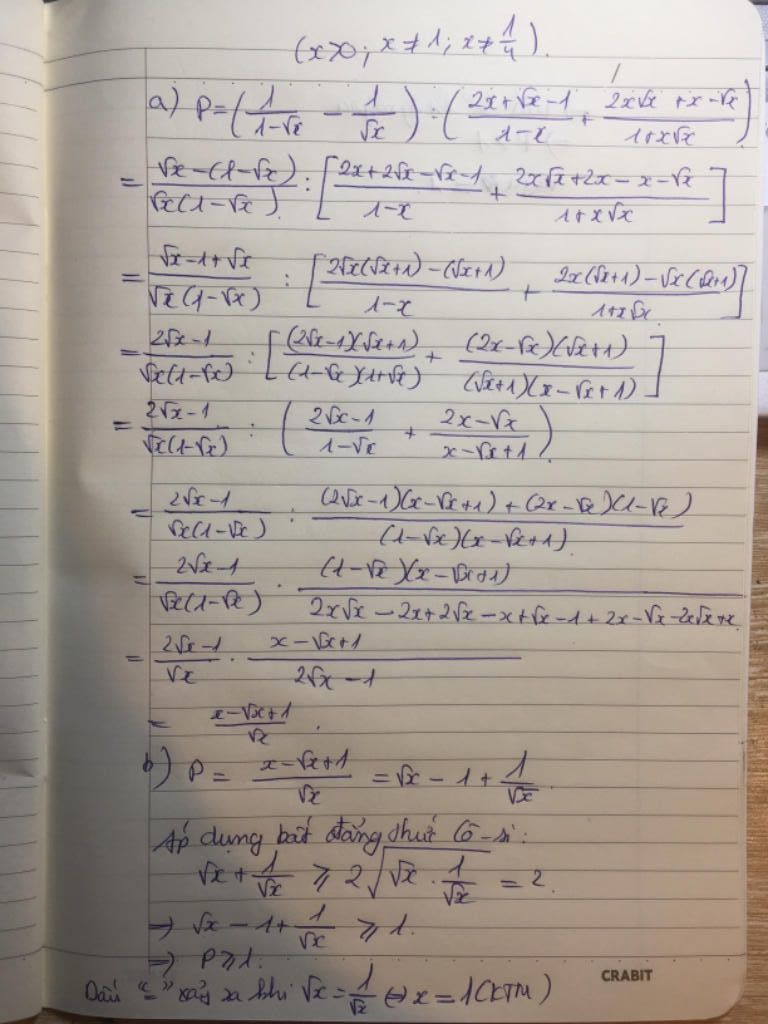 (x>0; x≠1; x≠1/4).
a) P=(1/(1-√x) - 1/√x) : ((2x+√x-1)/(1-x) + (2x√x+x-√x)/(1+x√x))
= (√x-(1-√x))/(√x(1-√x)) : [(2x+2√x-√x-1)/(1-x) + (2x√x+2x-x-√x)/(1+x√x)]
= (√x-1+√x)/(√x(1-√x)) : [(2√x(√x+1)-(√x+1))/(1-x) + (2x(√x+1)-√x(√x+1))/(1+x√x)]
= (2√x-1)/(√x(1-√x)) : [((2√x-1)(√x+1))/((1-√x)(1+√x)) + ((2x-√x)(√x+1))/((√x+1)(x-√x+1))]
= (2√x-1)/(√x(1-√x)) : ((2√x-1)/(1-√x) + (2x-√x)/(x-√x+1))
= (2√x-1)/(√x(1-√x)) : ((2√x-1)(x-√x+1)+(2x-√x)(1-√x))/((1-√x)(x-√x+1))
= (2√x-1)/(√x(1-√x)) · ((1-√x)(x-√x+1))/(2x√x-2x+2√x-x+√x-1+2x-√x-2x√x+x)
= (2√x-1)/√x · (x-√x+1)/(2√x-1)
= (x-√x+1)/√x.
b) P = (x-√x+1)/√x = √x-1+1/√x
Áp dụng bất đẳng thức Cô-si:
√x+1/√x ⩾ 2√(√x·1/√x) = 2.
⇒ √x-1+1/√x ⩾ 1.
⇒ P⩾1.
CRABIT
Dấu "=" xảy ra khi √x=1/√x ⇔ x=1(KTM)